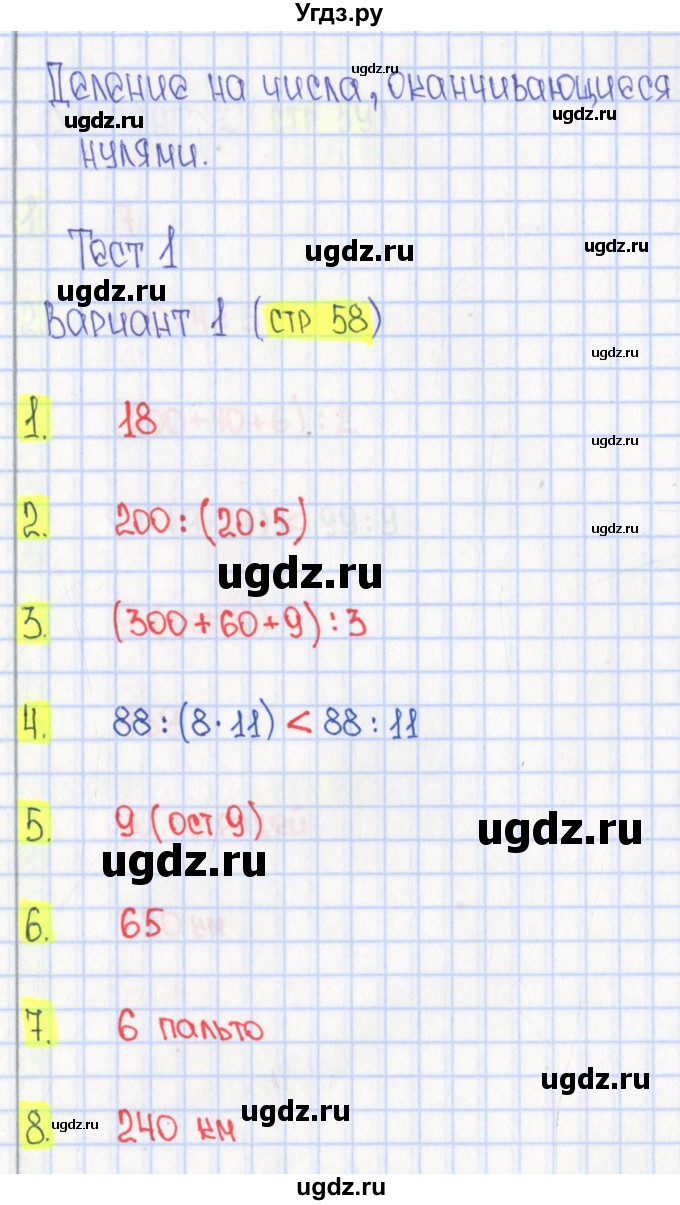 Угдз.ру
ugdz.ru
Деление на числа, оканчивающиеся
ugdz.ru
ugdz.ru
нулями.
Тест 1
ugdz.ru
ugdz.ru
ugdz.ru
Вариант 1 (стр 58)
ugdz.ru
1. 18
ugdz.ru
2. 200 : (20 · 5)
ugdz.ru
ugdz.ru
3. (300 + 60 + 9) : 3
4. 88 : (8 · 11) < 88 : 11
5. 9 (ост 9)
ugdz.ru
ugdz.ru
6. 65
7. 6 пальто
ugdz.ru
ugdz.ru
8. 240 км
ugdz.ru
ugdz.ru